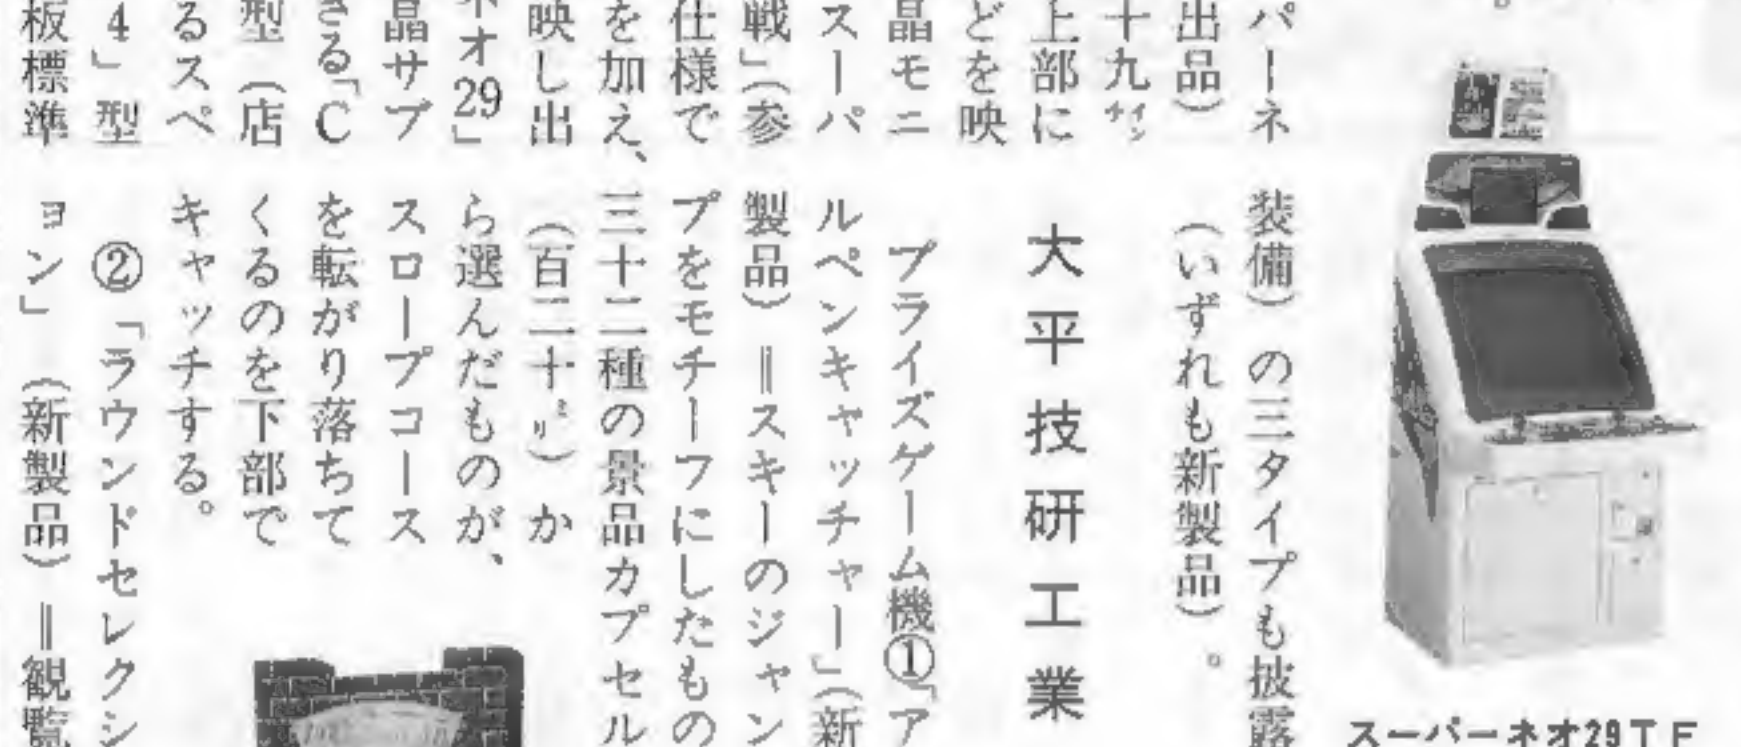 パーネ
出品）
十九㌅
上部に
どを映
晶モニ
スーパ
戦」（参
仕様で
を加え、
映し出
ネオ29」
晶サブ
きる「C
型（店
るスペ
4」型
板標準
装備）の三タイプも披露
（いずれも新製品）。
大平技研工業
プライズゲーム機①「ア
ルペンキャッチャー」（新
製品）＝スキーのジャン
プをモチーフにしたもの
三十二種の景品カプセル
（百二十㍉）か
ら選んだものが、
スロープコース
を転がり落ちて
くるのを下部で
キャッチする。
②「ラウンドセレクシ
ョン」（新製品）＝観覧
スーパーネオ29TF